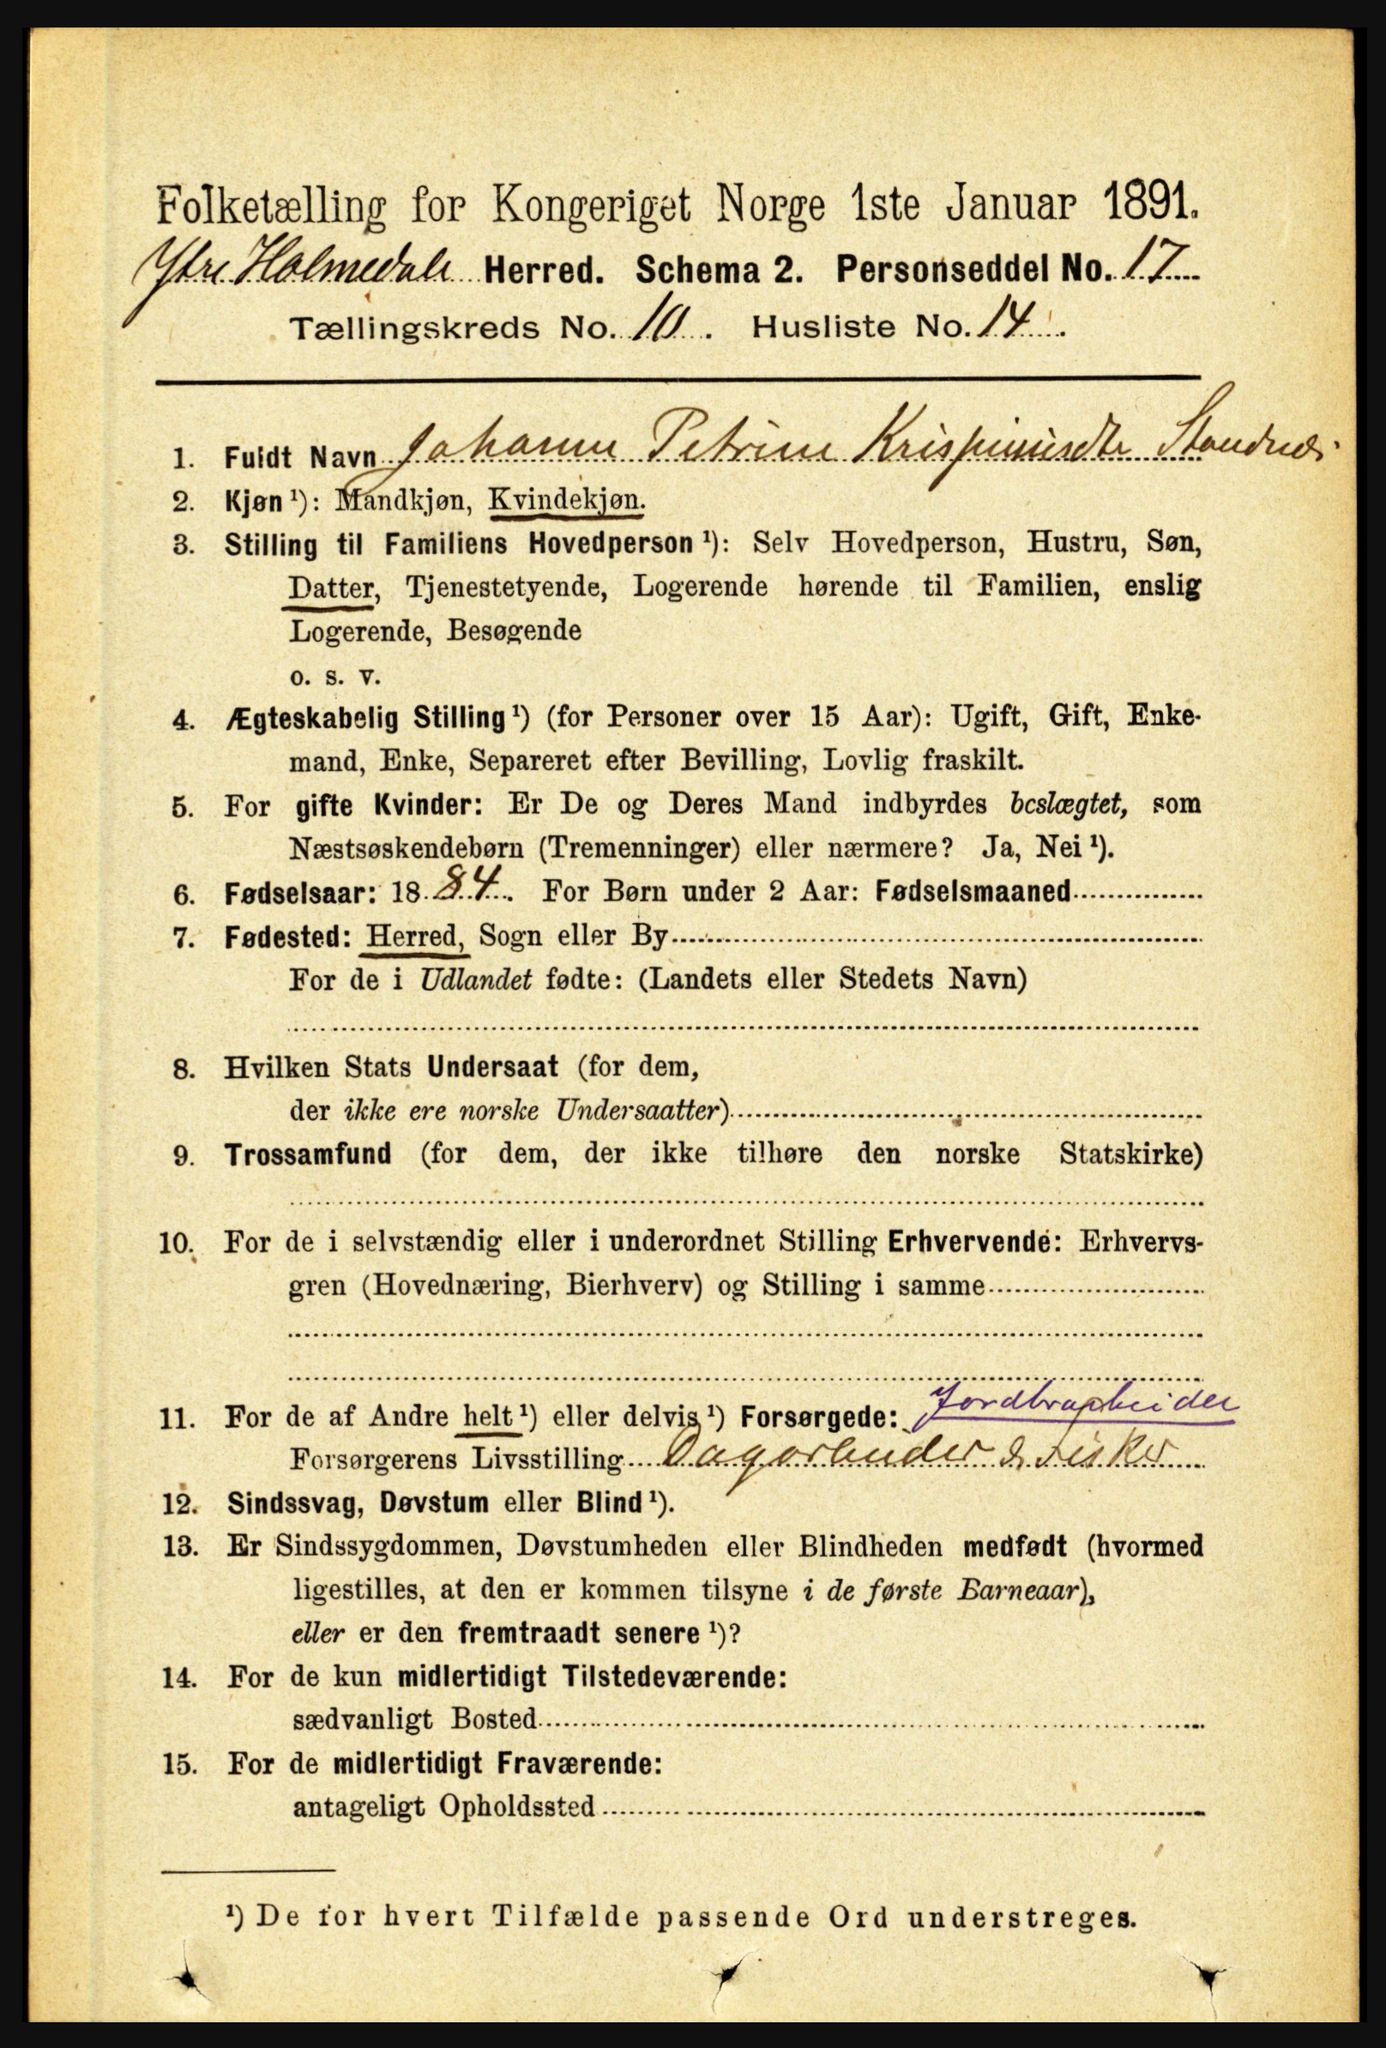 Folketælling for Kongeriget Norge 1ste Januar 1891.
Ytre Holmedale Herred. Schema 2. Personseddel No. 17
Tællingskreds No. 10. Husliste No. 14.
1. Fuldt Navn Johanne Petrine
2. Kjøn ¹): Mandkjøn, Kvindekjøn.
3. Stilling til Familiens Hovedperson ¹): Selv Hovedperson, Hustru, Søn,
Datter, Tjenestetyende, Logerende hørende til Familien, enslig
Logerende, Besøgende
o. s. v.
4. Ægteskabelig Stilling ¹) (for Personer over 15 Aar): Ugift, Gift, Enke-
mand, Enke, Separeret efter Bevilling, Lovlig fraskilt.
5. For gifte Kvinder: Er De og Deres Mand indbyrdes beslægtet, som
Næstsøskendebørn (Tremenninger) eller nærmere? Ja, Nei ¹).
6. Fødselsaar: 1884. For Børn under 2 Aar: Fødselsmaaned
7. Fødested: Herred, Sogn eller By
For de i Udlandet fødte: (Landets eller Stedets Navn)
8. Hvilken Stats Undersaat (for dem,
der ikke ere norske Undersaatter)
9. Trossamfund (for dem, der ikke tilhøre den norske Statskirke)
10. For de i selvstændig eller i underordnet Stilling Erhvervende: Erhvervs-
gren (Hovednæring, Bierhverv) og Stilling i samme
Jordbrarbeider
11. For de af Andre helt ¹) eller delvis ¹) Forsørgede:
Forsørgerens Livsstilling Dagarbeider & Fisker
12. Sindssvag, Døvstum eller Blind ¹).
13. Er Sindssygdommen, Døvstumheden eller Blindheden medfødt (hvormed
ligestilles, at den er kommen tilsyne i de første Barneaar),
eller er den fremtraadt senere ¹)?
14. For de kun midlertidigt Tilstedeværende:
sædvanligt Bosted
15. For de midlertidigt Fraværende:
antageligt Opholdssted
¹) De for hvert Tilfælde passende Ord understreges.